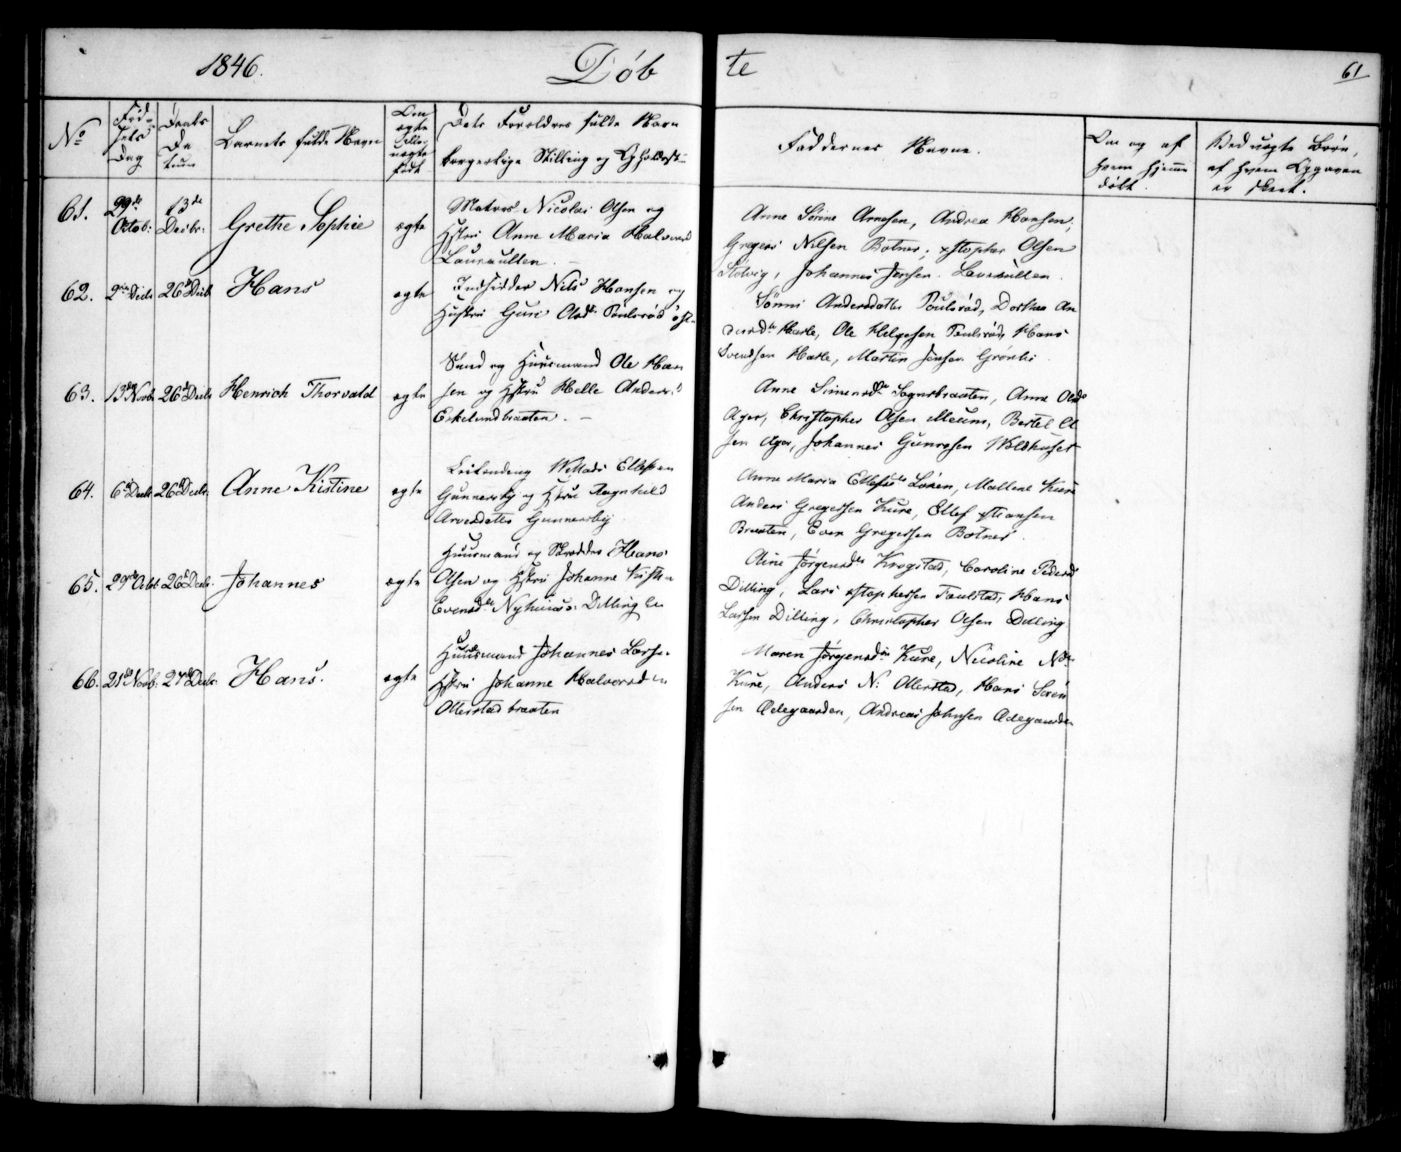 1846. Døb te 61
No Fød- sels Dag Daabs Da tum Barnets fulde Navn Om ægte eller uægte født Dets Forældres fulde Navn borgerlige Stilling og Opholdsst. Faddernes Navne. Om og af hvem hjemme døbt Ved uægte Børn, af hvem Opgaven er skeet.
61. 29de Octob: 13de Decbr: Grethe Sophie ægte
Matros Nicolai Olsen og
Hstru Anne Maria Halvorsd
Laursulten. —
Anne Sørine Arnesen, Andrea Hansen,
Gregers Nilsen Botner, xstopher Olsen
Stolvig, Johannes Jensen Laursulten.
62. 2den Decb 26de Decb Hans ægte
Indsidder Nils Hansen og
Hustru Guri Olsd: Poulsrød
Sønni Andersdatter Poulsrød, Dorthea An
dersdtr Harle, Ole Helgesen Poulsrød, Hans
Svendsen Harle, Martin Jensen Grønli
63. 13de Novb. 26 Decb Henrich Thorvald ægte
Smed og Huusmand Ole Han
sen og Hstru Helle Anders:d
Eskelundbraaten. —
Anne Simensdtr Sognsbraaten, Anne Olsdtr
Ager, Christopher Olsen Meum, Bertel Ol
sen Ager, Johannes Gunersen Wildhuset
64. 6de Decb 26de Decbr: Anne Kistine ægte
Leilending Mads Ellefsen
Gunnersby og Hstru Ragnhild
Arvesdatter Gunnersby
Anne Maria Ellefsdtr Løken, Mallene Kure
Anders Gregersen Kure, Ellef xtiansen
Braaten, Even Gregersen Botner.
65. 29de Octbr 26de Decb. Johannes ægte
Huusmand og Skredder Hans
Olsen og Hstru Johanne Kistin
Evensdtr Nyhuus: Dilling Ee
Aine Jørgensdtr Krogstad, Caroline Pedersd
Dilling, Lars xstophersen Faulstad, Hans
Larsen Dilling, Christopher Olsen Dilling
66. 21de Novb: 27de Decbr. Hans. ægte
Huusmand Johannes Larse.
Hstru Johanne Halvorsd
Ollerstadbraaten
Maren Jørgensdtr Kure, Nicoline
Kure, Anders N: Ollerstad, Hans Søren
sen Ødegaarden, Andreas Johnsen Ødegaarden